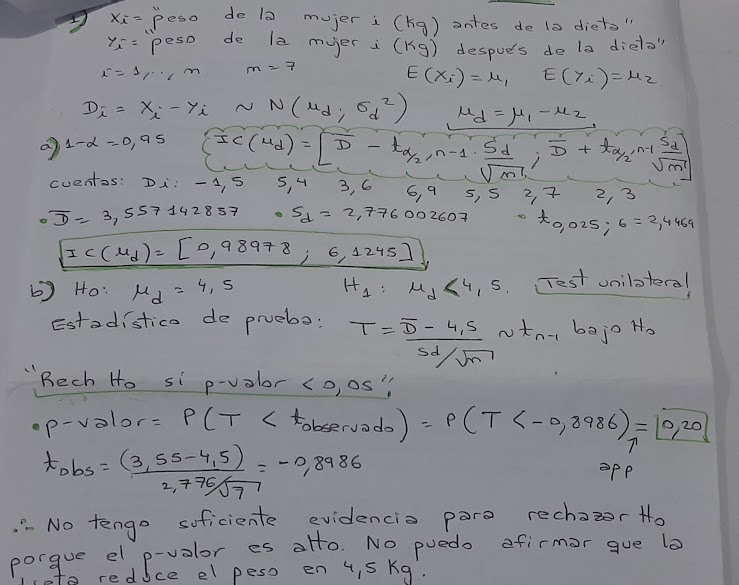 1) Xi = "peso de la mujer i (Kg) antes de la dieta"
Yi = "peso de la mujer i (Kg) después de la dieta"
i = 1,..., n n = 7 E(Xi) = μ1 E(Yi) = μ2
Di = Xi - Yi ~ N(μd; σd²) μd = μ1 - μ2
a) 1-α = 0,95 IC(μd) = [D̄ - tα/2, n-1 · Sd/√n ; D̄ + tα/2, n-1 Sd/√n]
cuentas: Di: -1,5 5,4 3,6 6,9 5,5 2,7 2,3
• D̄ = 3,557142857 • Sd = 2,776002607 • t0,025; 6 = 2,4469
IC(μd) = [0,98978 ; 6,1245]
b) Ho: μd = 4,5 H1: μd < 4,5. Test unilateral
Estadístico de prueba: T = (D̄ - 4,5)/(Sd/√n) ~ tn-1 bajo Ho
"Rech Ho si p-valor < 0,05"
• p-valor = P(T < tobservado) = P(T < -0,8986) = 0,20
↑
app
tobs = (3,55-4,5)/(2,776/√7) = -0,8986
∴ No tengo suficiente evidencia para rechazar Ho
porque el p-valor es alto. No puedo afirmar que la
dieta reduce el peso en 4,5 Kg.